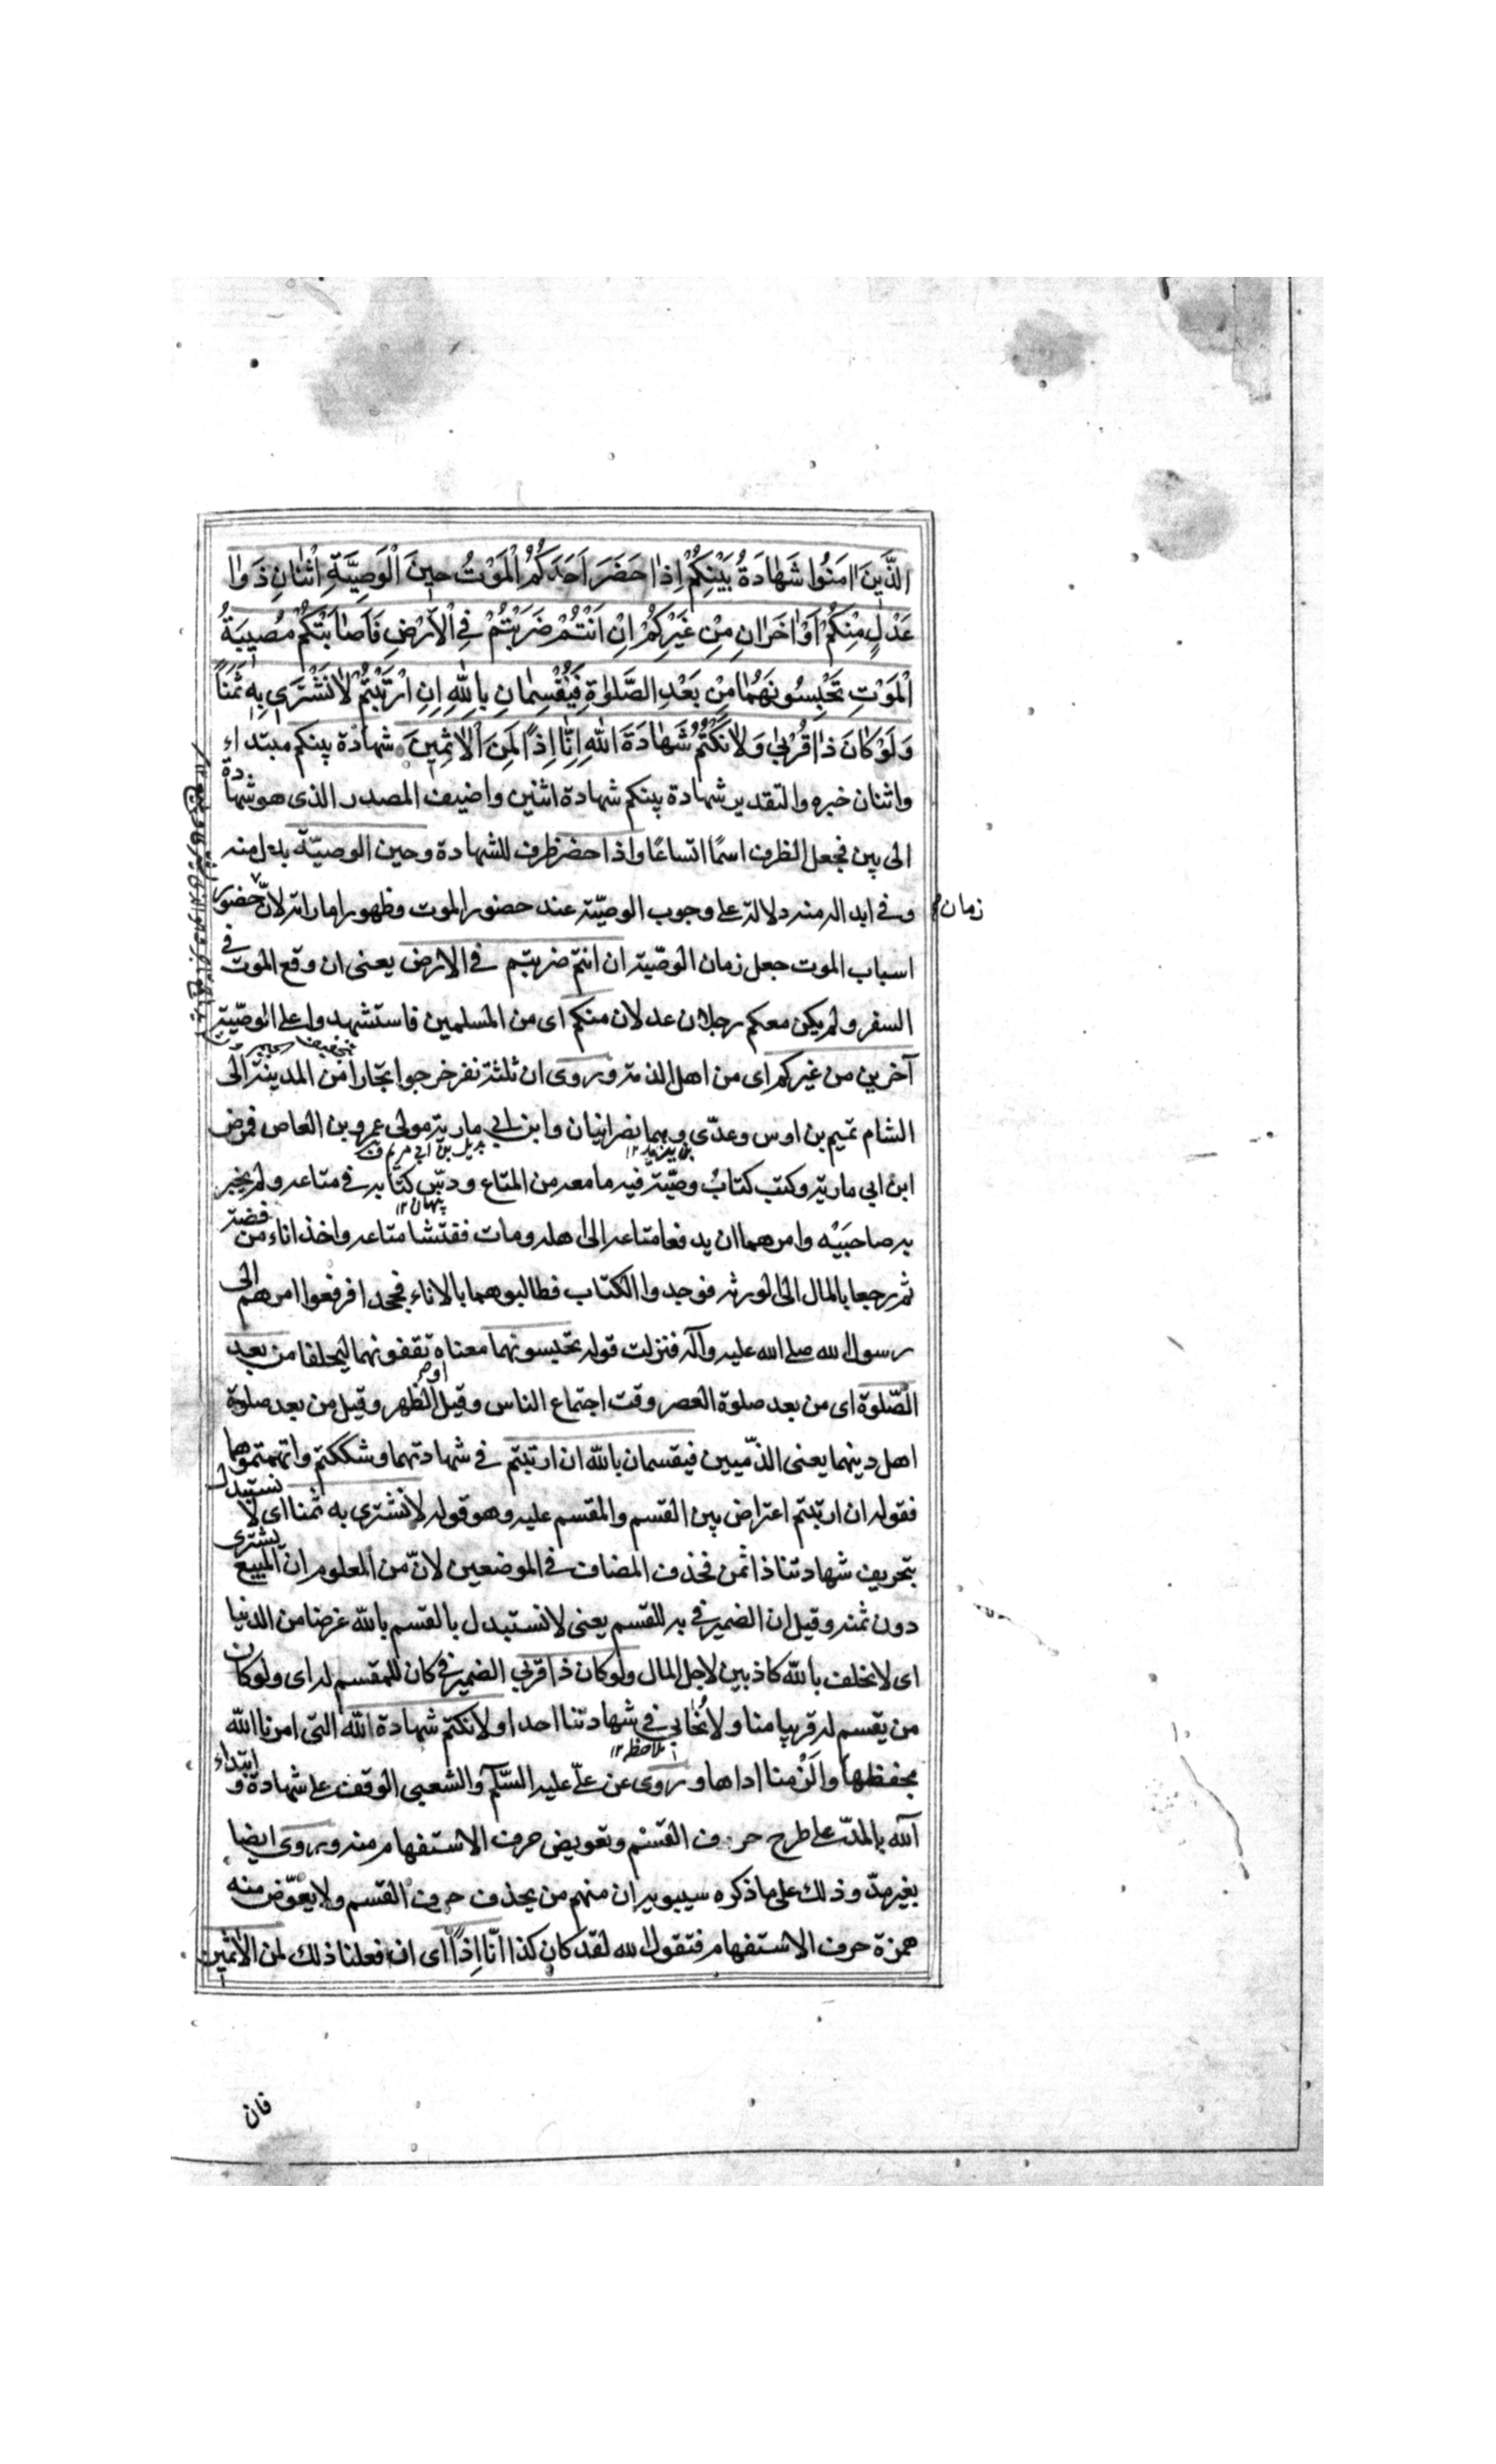 الَّذِينَ اٰمَنُوا شَهَادَةُ بَيْنِكُمْ اِذَا حَضَرَ اَحَدَكُمُ الْمَوْتُ حِينَ الْوَصِيَّةِ اثْنَانِ ذَوَا
عَدْلٍ مِنْكُمْ اَوْ اٰخَرَانِ مِنْ غَيْرِكُمْ اِنْ اَنْتُمْ ضَرَبْتُمْ فِي الْاَرْضِ فَاَصَابَتْكُمْ مُصِيبَةُ
الْمَوْتِ تَحْبِسُونَهُمَا مِنْ بَعْدِ الصَّلٰوةِ فَيُقْسِمَانِ بِاللّٰهِ اِنِ ارْتَبْتُمْ لَا نَشْتَرِي بِهِ ثَمَنًا
وَلَوْ كَانَ ذَا قُرْبٰى وَلَا نَكْتُمُ شَهَادَةَ اللّٰهِ اِنَّا اِذًا لَمِنَ الْاٰثِمِينَ شهادة بينكم مبتداء
واثنان خبره والتقدير شهادة بينكم شهادة اثنين واضيف المصدر الذى هو شهادة
الى بين فجعل الظرف اسمًا اتساعًا واذا حضر ظرف للشهادة وحين الوصيّة بدل منه
وفى ابداله منه دلالة على وجوب الوصيّة عند حضور الموت وظهور اماراته لانّ حضور
زمان
اسباب الموت جعل زمان الوصّية ان انتم ضربتم فى الارض يعنى ان وقع الموت فى
السفر ولم يكن معكم رجلان عدلان منكم اى من المسلمين فاستشهدوا على الوصّية
آخرين من غيركم اى من اهل الذمة وروى ان ثلثة نفر خرجوا تجارا من المدينة الى
الشام تميم بن اوس وعدّى وهما نصرانيان وابن ابي مارية مولى عمرو بن العاص فمرض
بن يزيد ١٢
بديل بن ابي مريم
ابن ابي مارية وكتب كتاب وصّية فيه ما معه من المتاع ودسّ كتابه فى متاعه ولم يخبر
پنهان ١٢
به صاحبَيْه وامرهما ان يدفعا متاعه الى اهله ومات ففتشا متاعه واخذ اناء من فضة
ثم رجعا بالمال الى الورثة فوجدوا الكتاب فطالبوهما بالاناء فجحدا فرفعوا امرهم الى
رسول الله صلى الله عليه وآله فنزلت قوله تحبسونهما معناه تقفونهما ليحلفا من بعد
الصّلوة اى من بعد صلوة العصر وقت اجتماع الناس وقيل الظهر وقيل من بعد صلوة
اهل دينهما يعنى الذمّيين فيقسمان بالله ان ارتبتم فى شهادتهما وشككتم واتهمتموهما
فقوله ان ارتبتم اعتراض بين القسم والمقسم عليه وهو قوله لا نشترى به ثمنا اى لا نستبدل
بتحريف شهادتنا ذا ثمن فحذف المضاف فى الموضعين لانّ من المعلوم ان المبيع يشترى
دون ثمنه وقيل ان الضمير فى به للقسم يعنى لا نستبدل بالقسم بالله عرضا من الدنيا
اى لا نحلف بالله كاذبين لاجل المال ولو كان ذا قربى الضمير فى كان للمقسم له اى ولو كان
من يقسم له قريبا منا ولا نُحابي فى شهادتنا احدا ولا نكتم شهادة الله التى امرنا الله
ملاحظه ١٢
بحفظها واَلْزمنا اداها وروى عن علىّ عليه السّلم والشعبى الوقف على شهادة وابتداء
آلله بالمدّ على طرح حرف القسم وتعويض حرف الاستفهام منه وروى ايضا
بغير مدّ وذلك على ما ذكره سيبويه ان منهم من يحذف حرف القسم ولا يعوّض منه
همزة حرف الاستفهام فتقول الله لقد كان كذا انّا اذاً اى ان فعلنا ذلك لمن الاٰثمين
فان